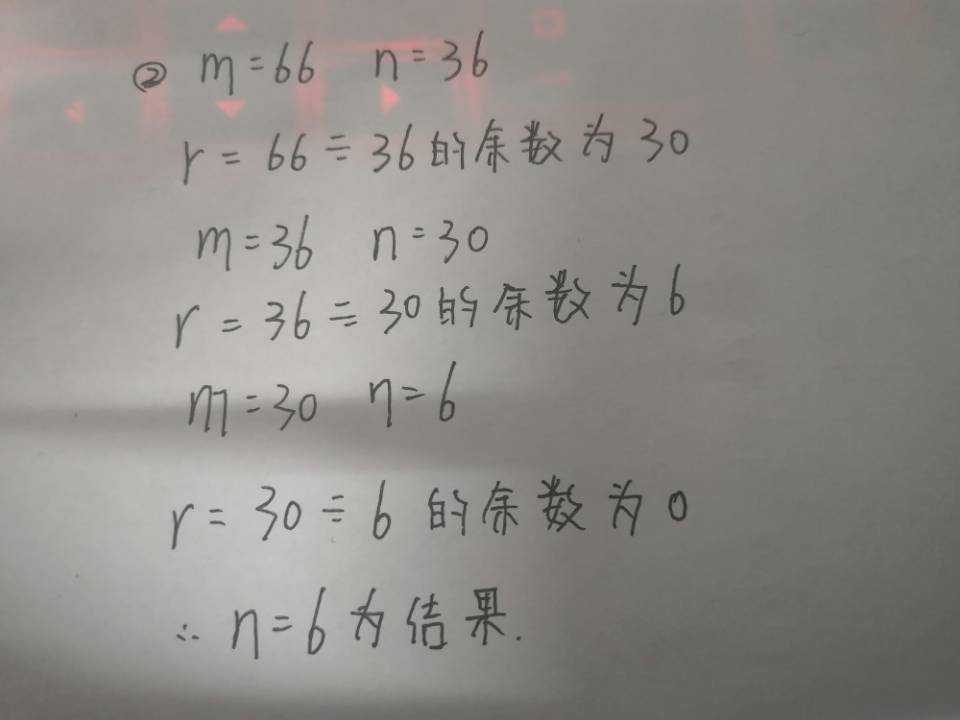 ② m=66 n=36
r=66÷36的余数为30
m=36 n=30
r=36÷30的余数为6
m=30 n=6
r=30÷6的余数为0
∴ n=6为结果.